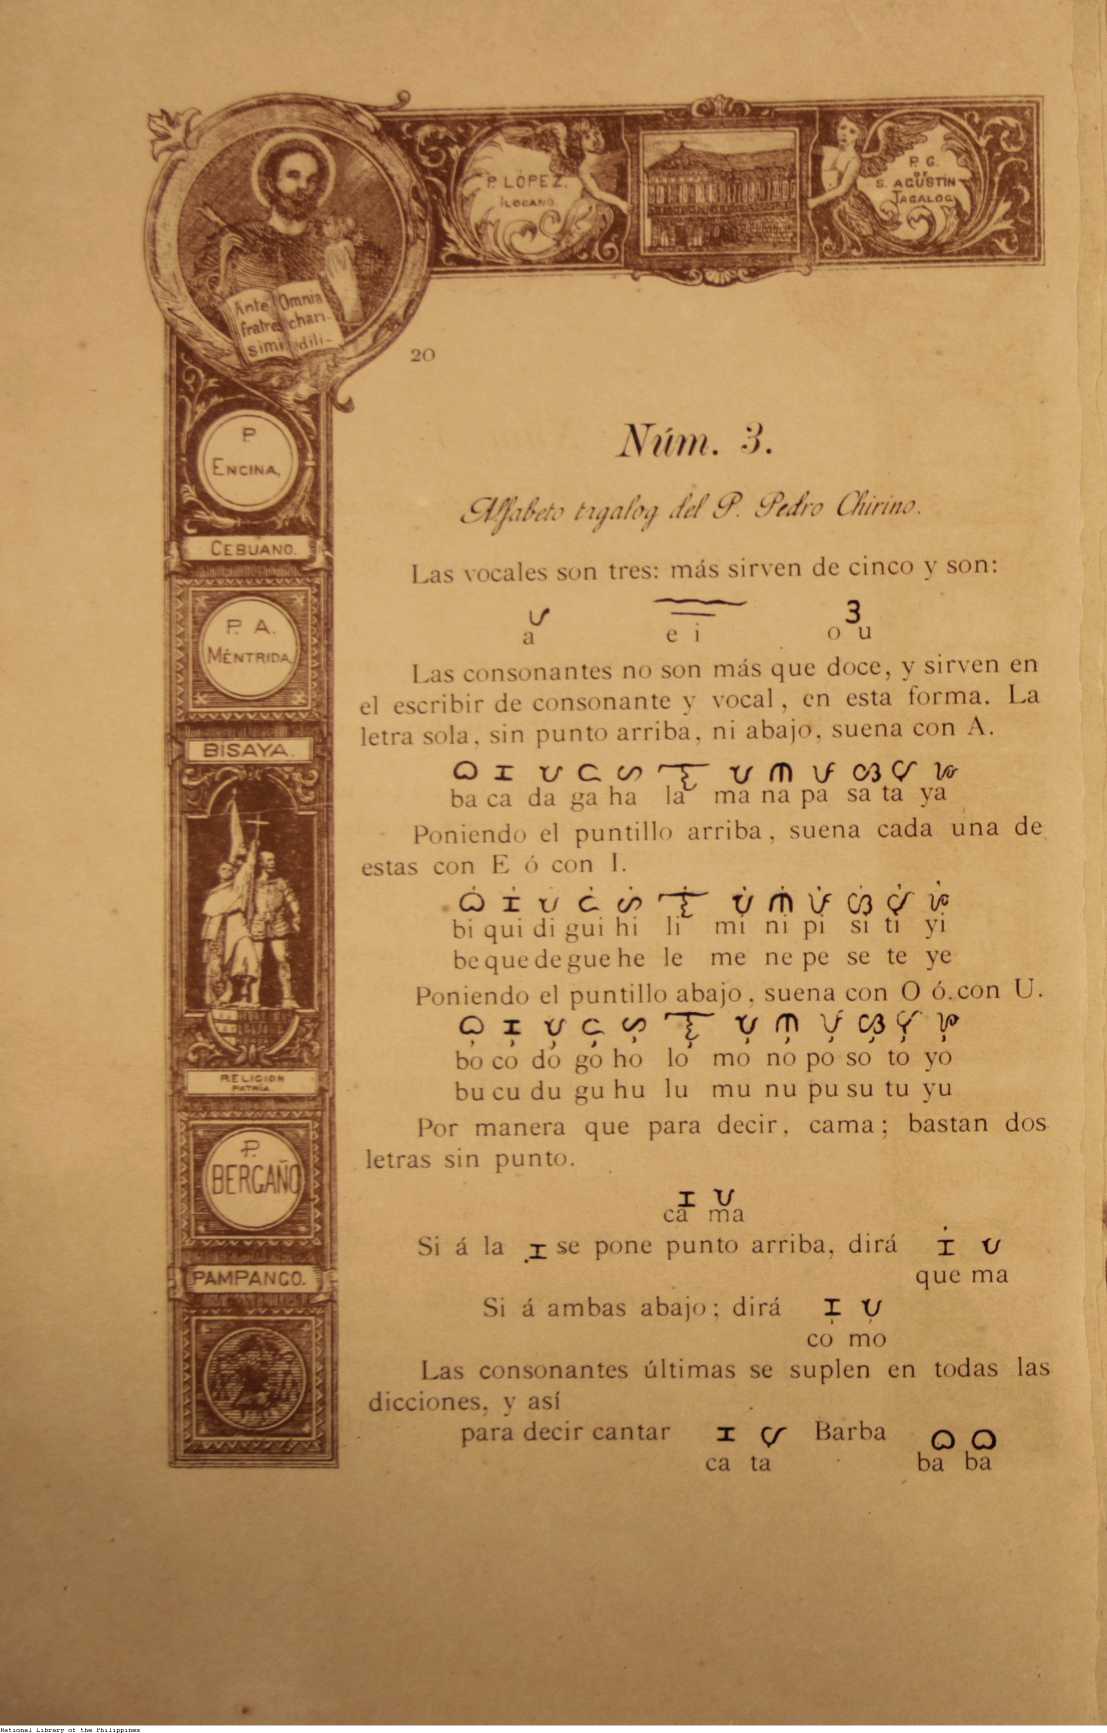 P. LÓPEZ.
ILOCANO.
P. G.
DE
S. AGUSTIN
TAGALOG
Ante Omnia
fratre chari-
simi dili-
20
P.
ENCINA.
CEBUANO.
P. A.
MÉNTRIDA
BISAYA.
RELIGION
PATRIA
P.
BERGAÑO
PAMPANGO.
Núm. 3.
Alfabeto tagalog del P. Pedro Chirino.
Las vocales son tres: más sirven de cinco y son:
ᜀ ᜁ ᜂ
a e i o u
Las consonantes no son más que doce, y sirven en
el escribir de consonante y vocal, en esta forma. La
letra sola, sin punto arriba, ni abajo, suena con A.
ᜊ ᜃ ᜇ ᜄ ᜑ ᜎ ᜋ ᜈ ᜉ ᜐ ᜆ ᜌ
ba ca da ga ha la ma na pa sa ta ya
Poniendo el puntillo arriba, suena cada una de
estas con E ó con I.
ᜊᜒ ᜃᜒ ᜇᜒ ᜄᜒ ᜑᜒ ᜎᜒ ᜋᜒ ᜈᜒ ᜉᜒ ᜐᜒ ᜆᜒ ᜌᜒ
bi qui di gui hi li mi ni pi si ti yi
be que de gue he le me ne pe se te ye
Poniendo el puntillo abajo, suena con O ó con U.
ᜊᜓ ᜃᜓ ᜇᜓ ᜄᜓ ᜑᜓ ᜎᜓ ᜋᜓ ᜈᜓ ᜉᜓ ᜐᜓ ᜆᜓ ᜌᜓ
bo co do go ho lo mo no po so to yo
bu cu du gu hu lu mu nu pu su tu yu
Por manera que para decir, cama; bastan dos
letras sin punto.
ᜃ ᜋ
ca ma
Si á la ᜃ se pone punto arriba, dirá ᜃᜒ ᜋ
que ma
Si á ambas abajo; dirá ᜃᜓ ᜋᜓ
co mo
Las consonantes últimas se suplen en todas las
dicciones, y así
para decir cantar ᜃ ᜆ Barba ᜊ ᜊ
ca ta ba ba
National Library of the Philippines